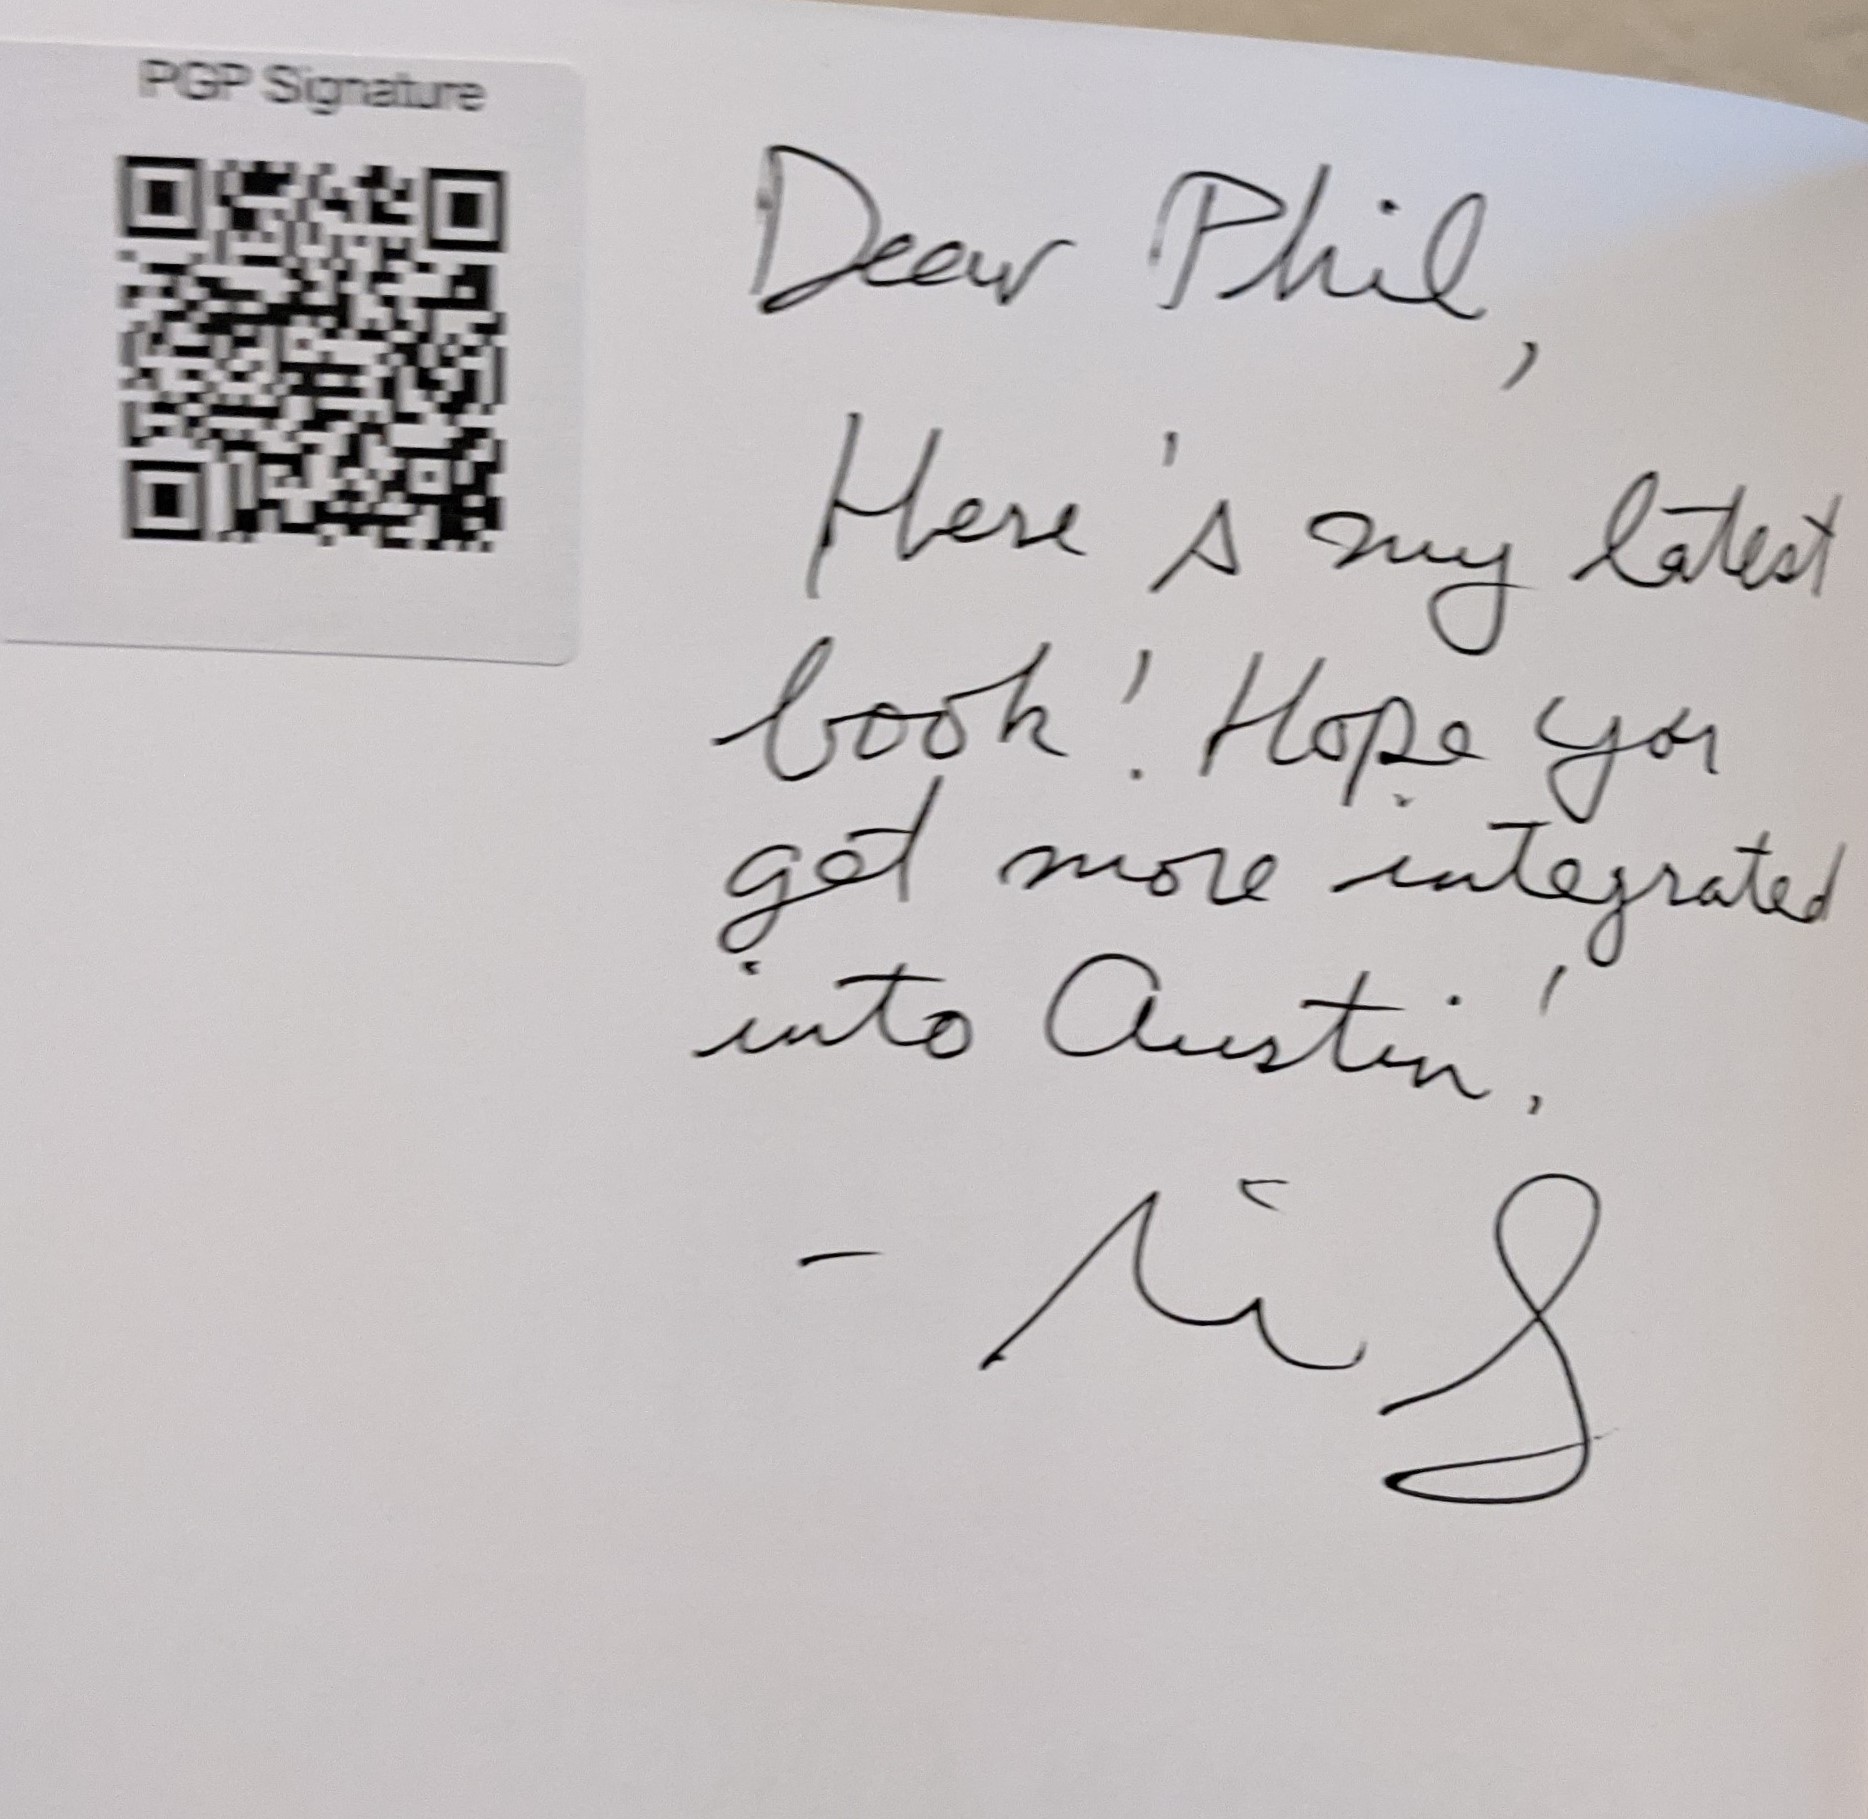 PGP Signature
Dear Phil,
Here's my latest
book! Hope you
get more integrated
into Austin!
-